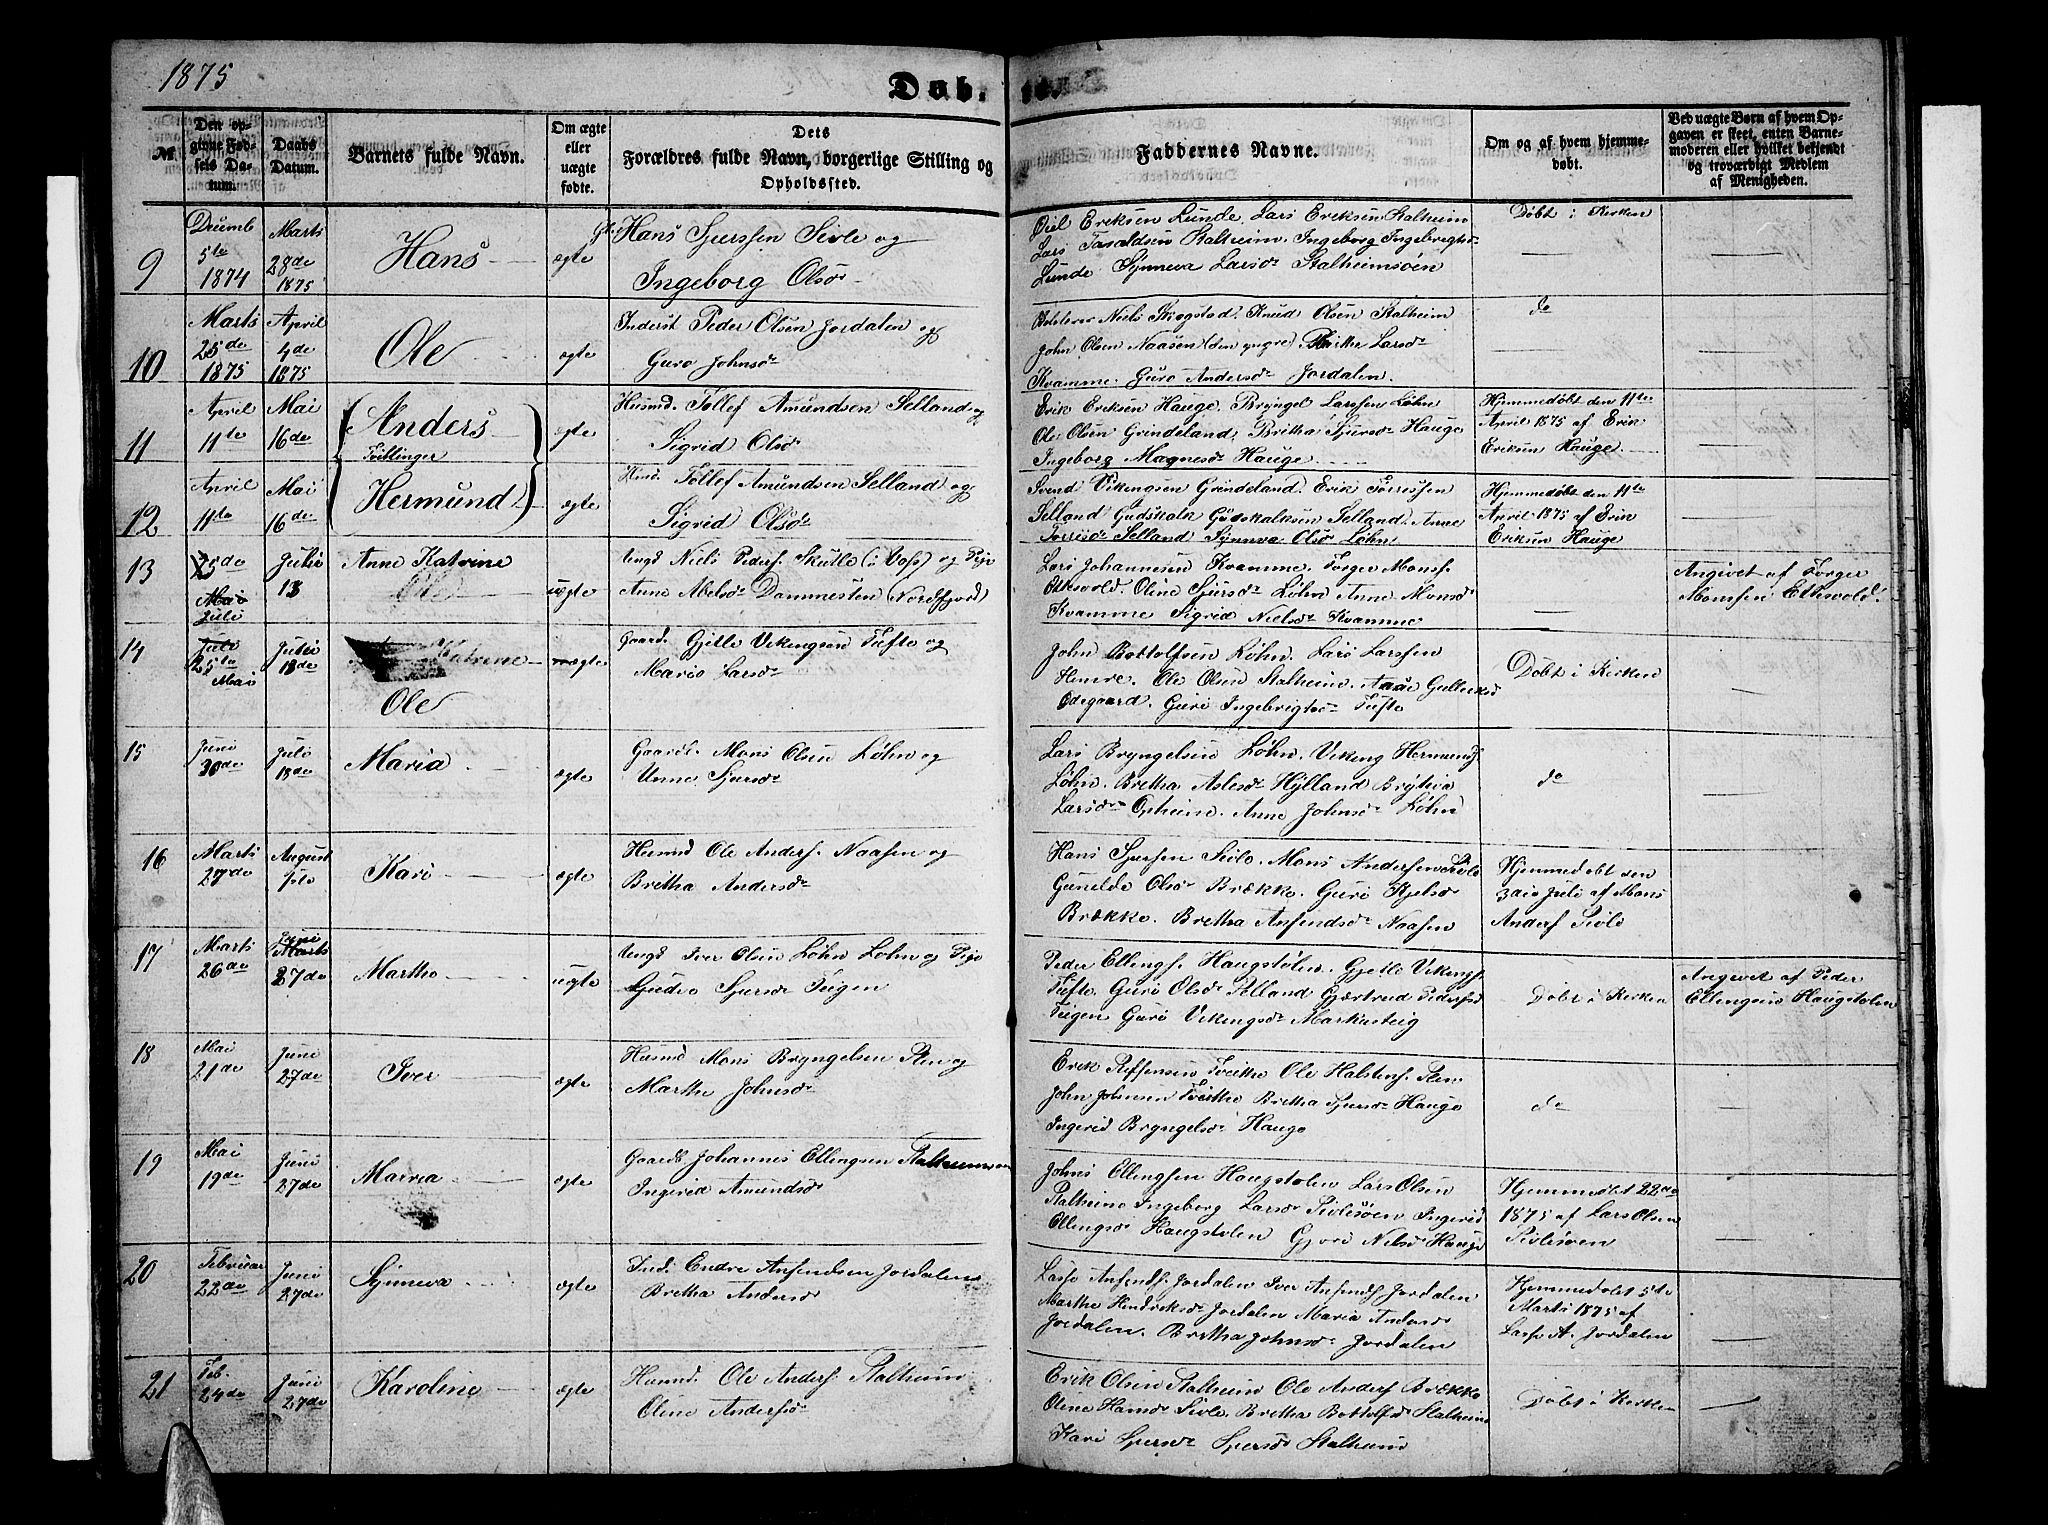 1875
Døb-
№
Den opgivne Fødsels Datum.
Daabs Datum.
Barnets fulde Navn.
Om ægte eller uægte fødte.
Dets Forældres fulde Navn, borgerlige Stilling og Opholdssted.
Faddernes Navne.
Om og af hvem hjemmedøbt.
Ved uægte Børn af hvem Opgaven er skeet, enten Barnemoderen eller hvilket bekjendt og troværdigt Medlem af Menigheden.
9
5te
1874
Marts
28de
1875
Hans
ægte
Hans Sjurssen Sivle og
Ingeborg Olsdr
Eriksen Lunde, Lars Eriksen Stalheim
Lars Stalheim. Ingeborg Ingebrigtsdr
Lunde Synneva Larsdr Stalheimsøen
Døbt i Kirken
10
Marts
25de
1875
April
4de
1875
Ole
ægte
Inderst Peder Olsen Jordalen og
Guro Johnsdr
Niels Skogstad. Knud Olsen Stalheim
John Olsen Naasen (den yngre) Larsdr
Kvamme. Guro Andersdr Jordalen.
do
11
April
11te
Mai
16de
Anders
Tvillinger
ægte
Husmd. Tollef Amundsen Selland og
Sigrid Olsdr
Erik Eriksen Hauge. Bryngel Larssen Løhn
Ole Olsen Grindeland. Britha Sjursdr Hauge
Ingeborg Magnesdr Hauge.
Hjemmedøbt den 11te
April 1875 af Erik
Eriksen Hauge.
12
April
11te
Mai
16de
Hermund
ægte
Tollef Amundsen Selland og
Sigrid Olsdr
Svend Vikingsen Grindeland. Erik Torrissen
Selland Gudskalk Gudskalksen Selland. Anne
Torrisdr Selland Synneva Olsdr Løhn
Hjemmedøbt den 11te
April 1875 af Erik
Eriksen Hauge
13
Mai
Juli
Juli
13
Anne Katrine
Ole
uægte
Ungd Niels Peders. Skutle (i Voss) og Pige
Anne Abelsdr Dommesten (Nordfjord)
Lars Johannesen Kvamme. Torger Monss.
Sjursdr Løhn Anne Monsdr
Kvamme Sigrid Nielsdr Kvamme
Angivet af Torger
Monssen
14
Juli
25te
Mai
Juli
18de
Katrine
Ole
ægte
Gaard. Gjetle Vikingsen Tufte og
Mario Larsdr
John Bottolfsen Løhn. Lars Larssen
Ole Olsen Stalheim.
Odegaard. Guri Ingebrigtsdr Tufte
Døbt i Kirken
15
Juni
30de
Juli
18de
Maria
ægte
Gaardb. Mons Olsen Løhn og
Unne Sjursdr
Lars Bryngelsen Løhn. Viking Hermunds.
Løhn. Bretha Hylland Brytiva
Larsdr Opheim. Anne Johnsdr Løhn
do
16
Marts
27de
August
1ste
Kari
ægte
Husmd Ole Anders. Naasen og
Bretha Andersdr
Hans Sjursen Sivle. Mons Andersen Sivle
Gunilde Olsdr Brække. Guri Kjelsdr
Brække. Bretha Anfendsdr Naasen
Hjemmedøbt den
3die Juli af Mons
Anders Sivle
17
Marts
26de
Juni
Marts
27de
Martha
uægte
Ungd Iver Olsen Løhn Løhn og Pige
Sjursdr Teigen
Peder Ellings. Haugstølen. Gjetle Vikings.
Tufte. Guri Olsdr Selland Gjertrud Pedersdr
Teigen Guri Vikingsdr Markusteig
Døbt i Kirken
Angivet af Peder
Ellingsen Haugstolen
18
Mai
21de
Juni
27de
Iver
ægte
Husmd Mons Bryngelsen Sten og
Martha Johnsdr
Erik Steffensen Tveithe Ole Halstens. Sten.
John Johnsen Tveithe Bretha Sjursdr Hauge
Ingerid Bryngelsdr Hauge
do
19
Mai
19de
Juni
27de
Marea
ægte
Gaardb. Johannes Ellingsen
Ingerid Amundsdr
Johns Ellingsen Haugstolen Lars Olsen
Stalheim Ingeborg Larsdr Sivlesøen Ingerid
Ellingsdr Haugstolen Gjøri Nelsdr Hauge
Hjemmedøbt 22de
1875 af Lars Olsen
Sivlesøen
20
Februar
22de
Juni
27de
Synneva
ægte
Ind. Endre Anfendsen Jordalen
Bretha Andersdr
Lasse Anfends. Jordalen Iver Anfends Jordalen
Martha Hendriksdr Jordalen Maria Andersdr
Jordalen. Bretha Johnsdr Jordalen
Hjemmedøbt 5te
Marts 1875 af
Lasse A. Jordalen
21
Feb.
24de
Juni
27de
Karoline
ægte
Husmd. Ole Anders. Stalheim
Oline Andersdr
Erik Olsen Stalheim Ole Anders Brække
Oline Hansdr Sivle. Bretha Bottolfsdr Stalheim
Kari Sjursdr Sjursdr Stalheim
Døbt i Kirken